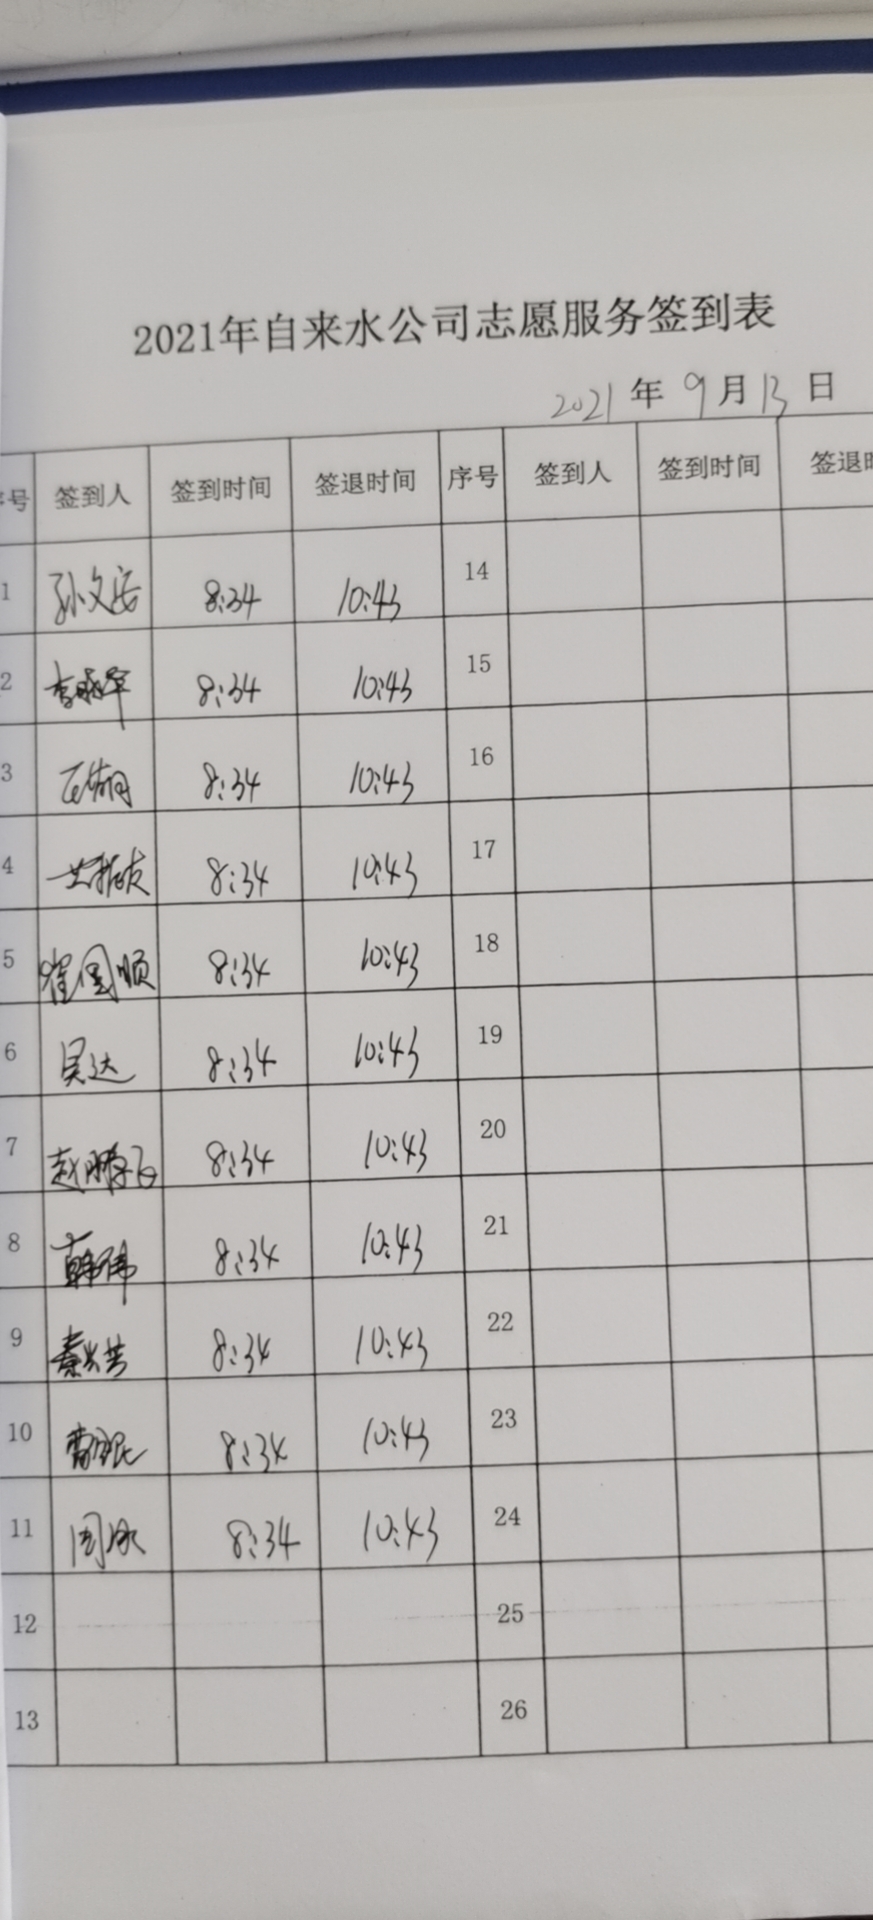 2021年自来水公司志愿服务签到表
2021 年 9 月 13 日
序号 签到人 签到时间 签退时间 序号 签到人 签到时间 签退时
1 孙文安 8:34 10:43 14
2 8:34 10:43 15
3 8:34 10:43 16
4 8:34 10:43 17
5 崔国顺 8:34 10:43 18
6 吴达 8:34 10:43 19
7 赵腾飞 8:34 10:43 20
8 韩伟 8:34 10:43 21
9 8:34 10:43 22
10 8:34 10:43 23
11 8:34 10:43 24
12 25
13 26